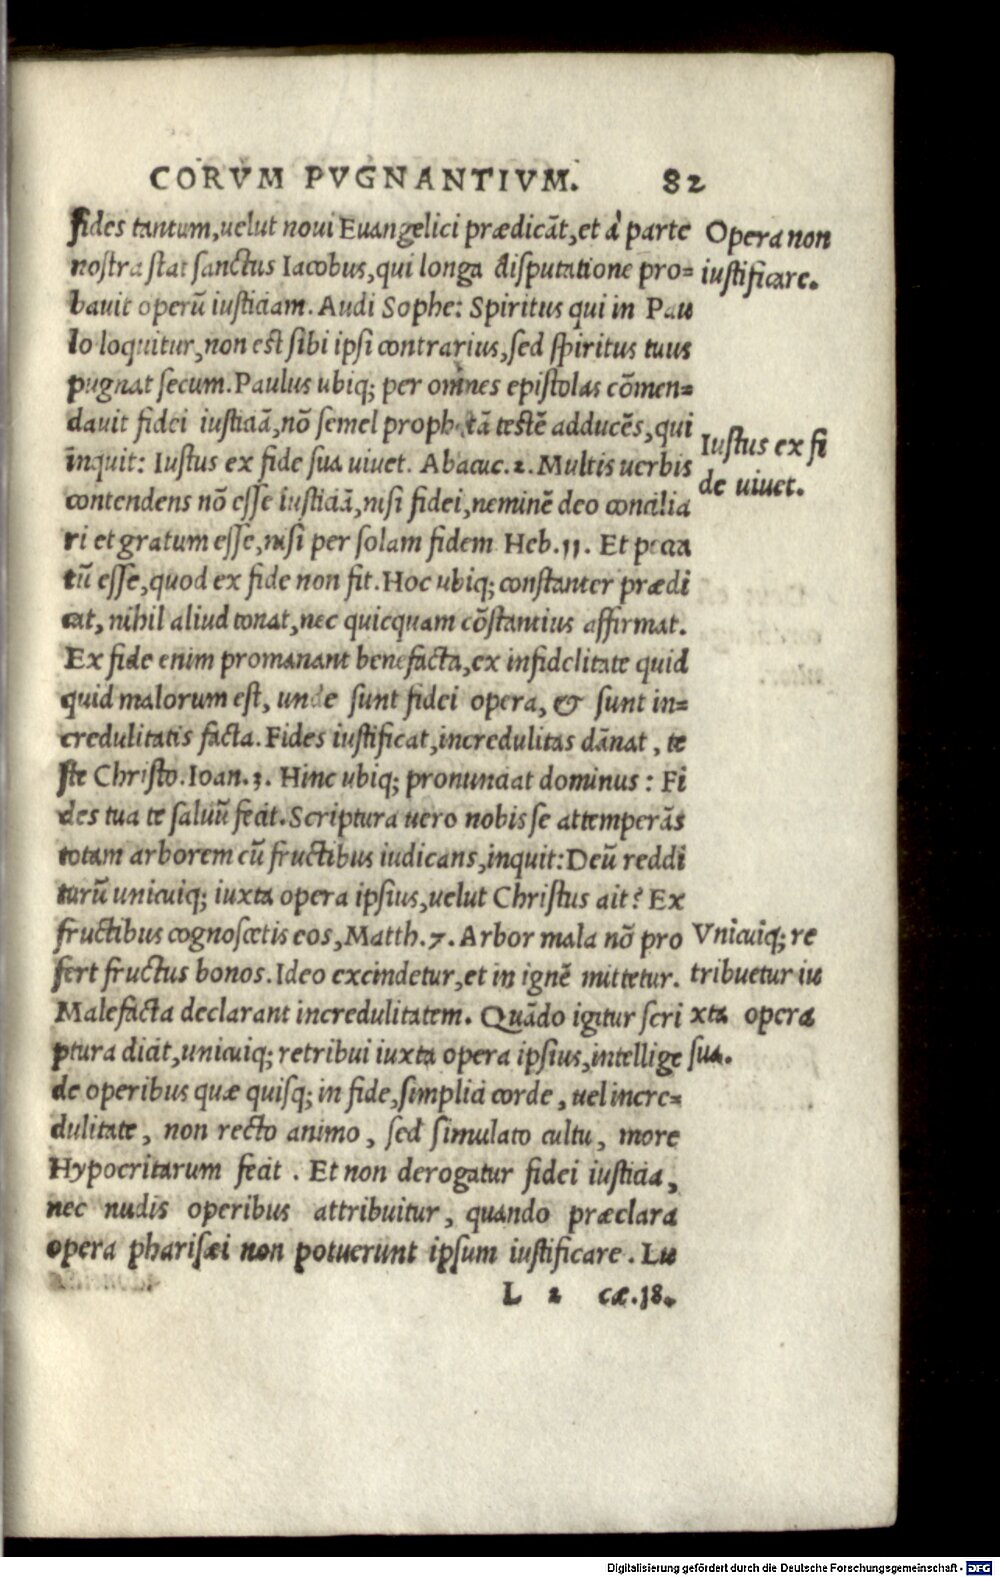 CORVM PVGNANTIVM. 82
fides tantum,uelut noui Euangelici prædicãt,et à parte
nostra stat sanctus Iacobus,qui longa disputatione pro=
bauit operũ iusticiam. Audi Sophe: Spiritus qui in Pau
lo loquitur,non est sibi ipsi contrarius,sed spiritus tuus
pugnat secum.Paulus ubiq; per omnes epistolas cõmen=
dauit fidei iusticiã,nõ semel prophetã testẽ adducẽs,qui
inquit: Iustus ex fide sua uiuet. Abacuc.2.Multis uerbis
contendens nõ esse iusticiã,nisi fidei,neminẽ deo concilia
ri et gratum esse,nisi per solam fidem Heb.11. Et pecca
tũ esse,quod ex fide non fit.Hoc ubiq; constanter prædi
cat, nihil aliud tonat,nec quicquam cõstantius affirmat.
Ex fide enim promanant benefacta,ex infidelitate quid
quid malorum est, unde sunt fidei opera, & sunt in=
credulitatis facta.Fides iustificat,incredulitas dãnat, te
ste Christo.Ioan.3. Hinc ubiq; pronunciat dominus: Fi
des tua te saluũ fecit.Scriptura uero nobis se attemperãs
totam arborem cũ fructibus iudicans,inquit:Deũ reddi
turũ unicuiq; iuxta opera ipsius,uelut Christus ait? Ex
fructibus cognoscetis eos,Matth.7.Arbor mala nõ pro
fert fructus bonos.Ideo excindetur,et in ignẽ mittetur.
Malefacta declarant incredulitatem. Quãdo igitur scri
ptura dicit,unicuiq; retribui iuxta opera ipsius,intellige
de operibus quæ quisq; in fide,simplici corde, uel incre=
dulitate, non recto animo, sed simulato cultu, more
Hypocritarum fecit. Et non derogatur fidei iusticia,
nec nudis operibus attribuitur, quando præclara
opera pharisæi non potuerunt ipsum iustificare. Lu
L 2 cæ.18.
Opera non
iustificare.
Iustus ex fi
de uiuet.
Vnicuiq; re
tribuetur iu
xta opera
sua.
Digitalisierung gefördert durch die Deutsche Forschungsgemeinschaft - DFG